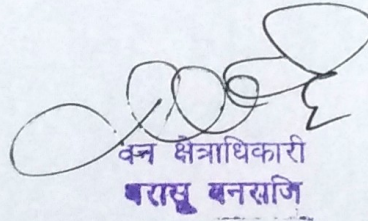 वन क्षेत्राधिकारी
बरासू वनराजि